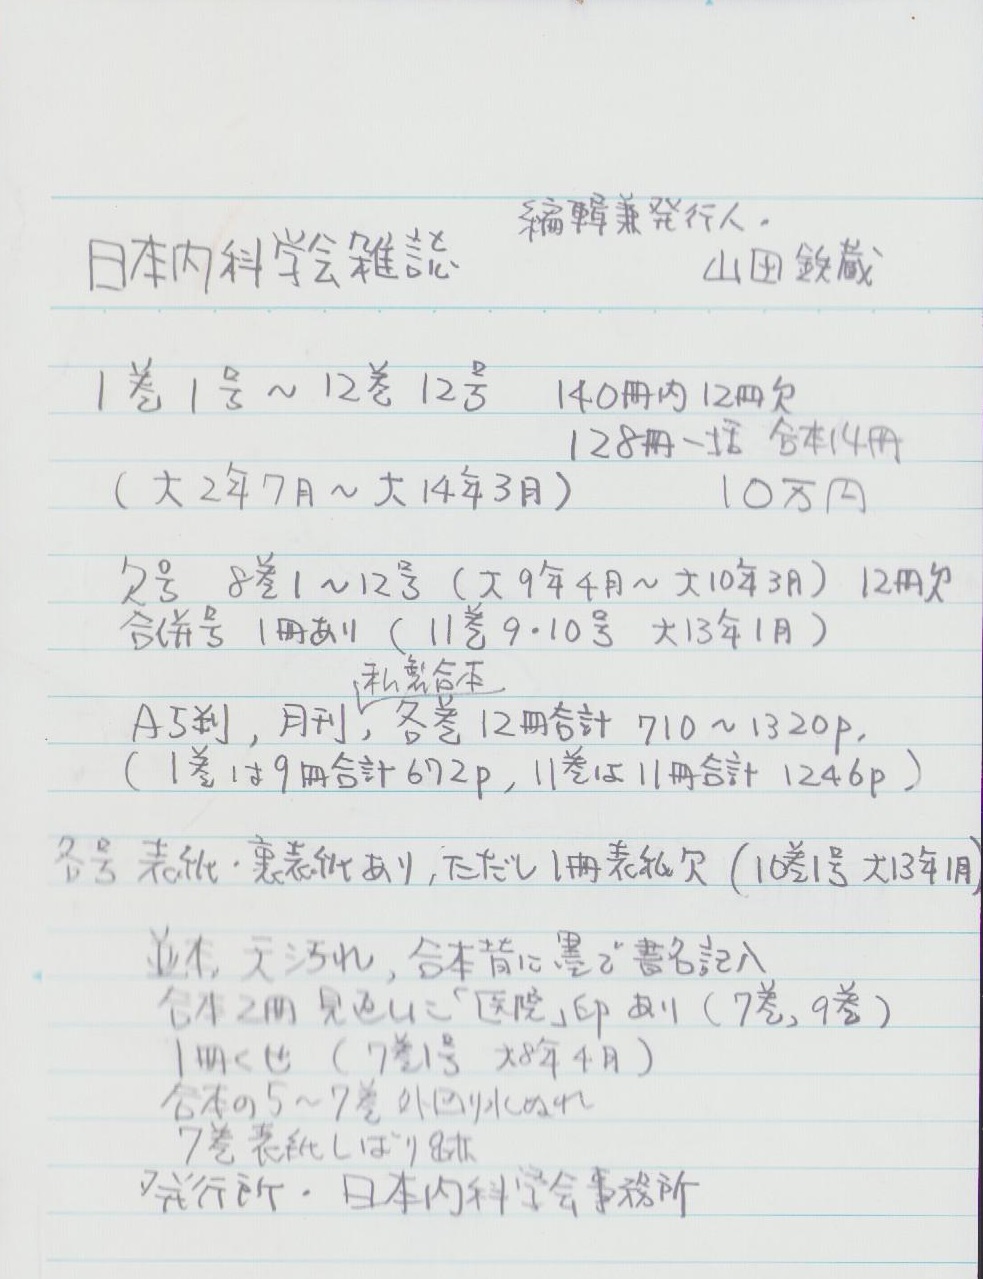 編輯兼発行人.
日本内科学会雑誌 山田鉄蔵
1巻1号～12巻12号 140冊内12冊欠
128冊一括 合本14冊
(大2年7月～大14年3月) 10万円
欠号 8巻1～12号(大9年4月～大10年3月) 12冊欠
合併号 1冊あり(11巻9・10号 大13年1月)
私製合本
A5判, 月刊, 各巻12冊合計 710～1320p.
(1巻は9冊合計672p, 11巻は11冊合計 1246p)
各号 表紙・裏表紙あり, ただし1冊表紙欠(10巻1号 大13年1月)
並本, 天汚れ, 合本背に墨で書名記入
合本2冊 見返しに「医院」印あり(7巻, 9巻)
1冊くせ(7巻1号 大8年4月)
合本の5～7巻 外回り水ぬれ
7巻表紙しばり跡
発行所・日本内科学会事務所